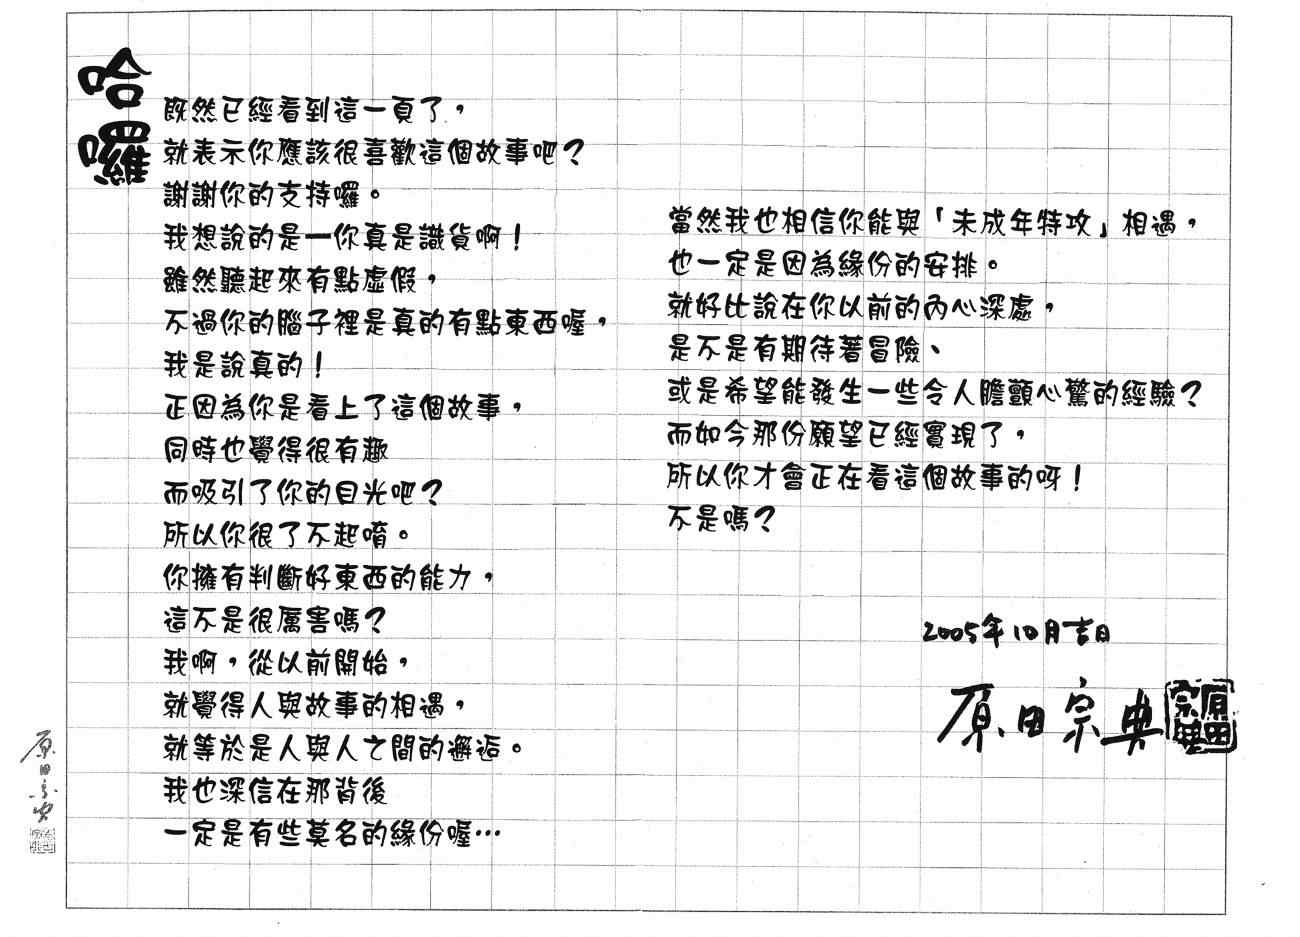 哈囉
既然已經看到這一頁了，
就表示你應該很喜歡這個故事吧？
謝謝你的支持囉。
我想說的是—你真是識貨啊！
雖然聽起來有點虛假，
不過你的腦子裡是真的有點東西喔，
我是說真的！
正因為你是看上了這個故事，
同時也覺得很有趣
而吸引了你的目光吧？
所以你很了不起唷。
你擁有判斷好東西的能力，
這不是很厲害嗎？
我啊，從以前開始，
就覺得人與故事的相遇，
就等於是人與人之間的邂逅。
我也深信在那背後
一定是有些莫名的緣份喔…
當然我也相信你能與「未成年特攻」相遇，
也一定是因為緣份的安排。
就好比說在你以前的內心深處，
是不是有期待著冒險、
或是希望能發生一些令人膽顫心驚的經驗？
而如今那份願望已經實現了，
所以你才會正在看這個故事的呀！
不是嗎？
2005年10月吉日
原田宗典
原田宗典
原田宗典